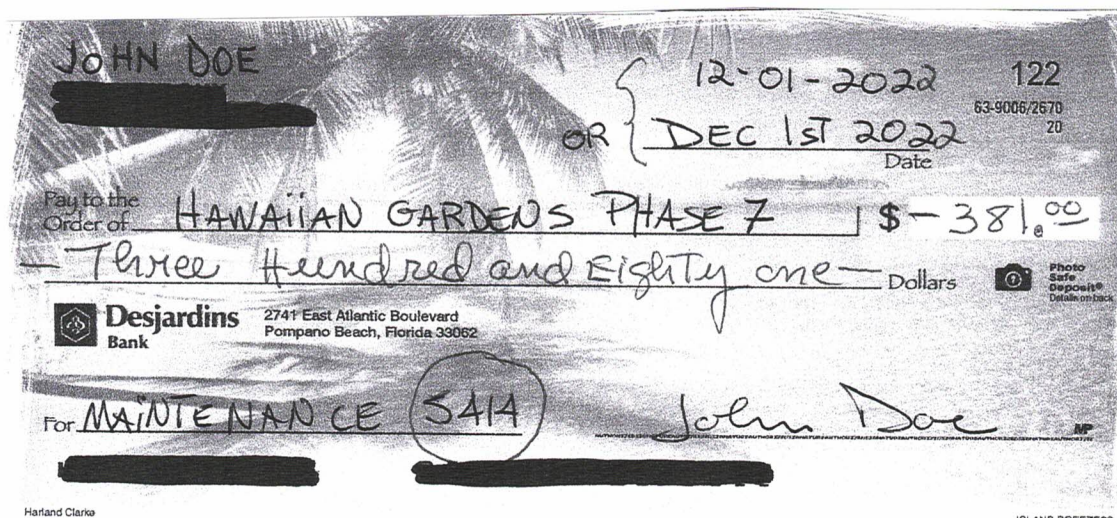 JOHN DOE
12-01-2022
122
63-9006/2670
20
OR
DEC 1ST 2022
Date
Pay to the
Order of HAWAIIAN GARDENS PHASE 7 $ - 381.00
- Three Hundred and Eighty one - Dollars
Photo
Safe
Deposit®
Details on back
Desjardins
Bank
2741 East Atlantic Boulevard
Pompano Beach, Florida 33062
For MAINTENANCE 5414
John Doe
MP
Harland Clarke